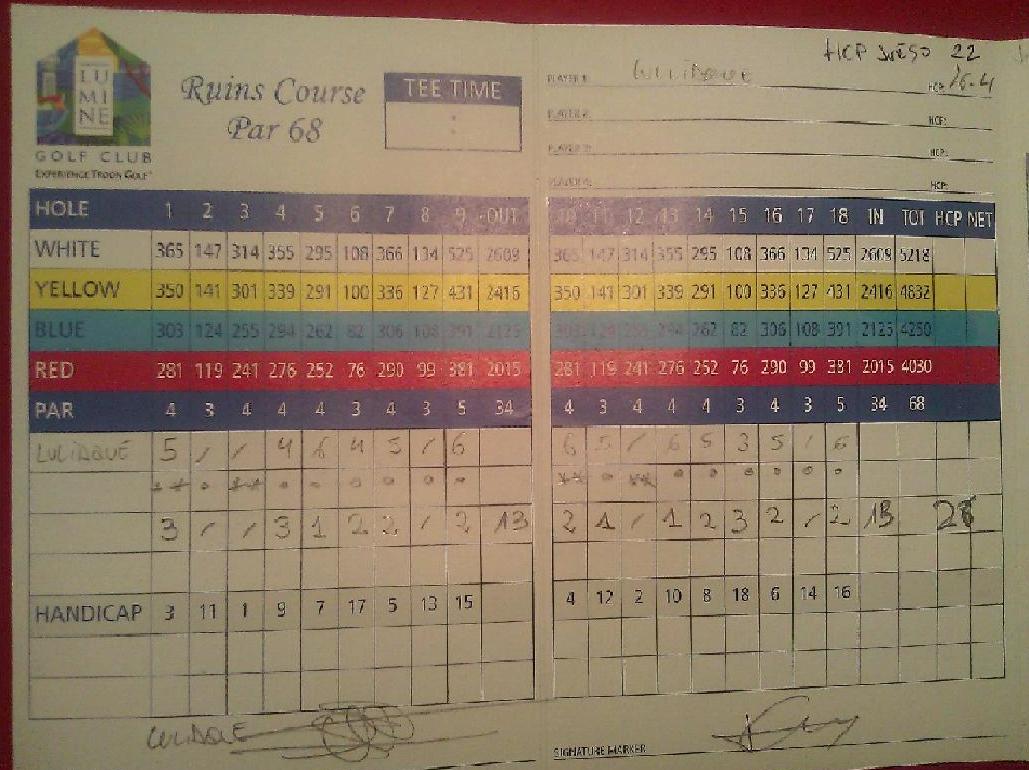 LU
MI
NE
GOLF CLUB
EXPERIENCE TROON GOLF
Ruins Course
Par 68
TEE TIME
:
HCP JUEGO 22
PLAYER 1: LULIDQUE HCP: 16.4
PLAYER 2: HCP:
PLAYER 3: HCP:
PLAYER 4: HCP:
HOLE 1 2 3 4 5 6 7 8 9 OUT 10 11 12 13 14 15 16 17 18 IN TOT HCP NET
WHITE 365 147 314 355 295 108 366 134 525 2609 365 147 314 355 295 108 366 134 525 2609 5218
YELLOW 350 141 301 339 291 100 336 127 431 2416 350 141 301 339 291 100 336 127 431 2416 4832
BLUE 303 124 255 294 262 82 306 108 391 2125 303 124 255 294 262 82 306 108 391 2125 4250
RED 281 119 241 276 252 76 290 99 381 2015 281 119 241 276 252 76 290 99 381 2015 4030
PAR 4 3 4 4 4 3 4 3 5 34 4 3 4 4 4 3 4 3 5 34 68
LULIDQUE 5 / / 4 6 4 5 / 6 6 5 / 6 5 3 5 / 6
** * ** * * * * * * ** * ** * * * * * *
3 / / 3 1 2 2 / 2 13 2 1 / 1 2 3 2 / 2 13
HANDICAP 3 11 1 9 7 17 5 13 15 4 12 2 10 8 18 6 14 16
LULIDQUE
SIGNATURE MARKER